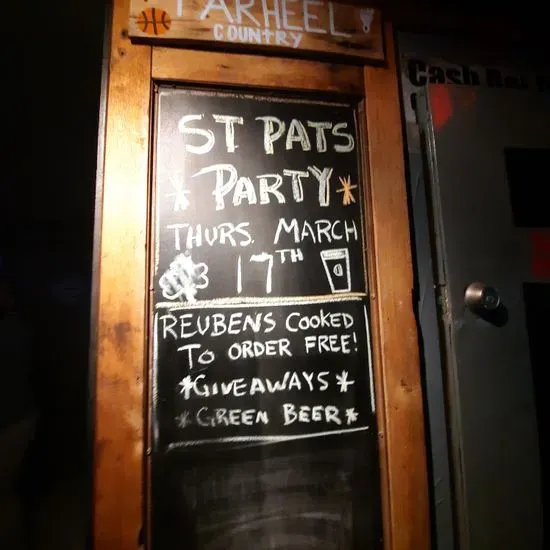 TARHEEL
COUNTRY
Cash
ST PATS
*PARTY*
THURS. MARCH
17TH
REUBENS COOKED
TO ORDER FREE!
*GIVEAWAYS*
*GREEN BEER*